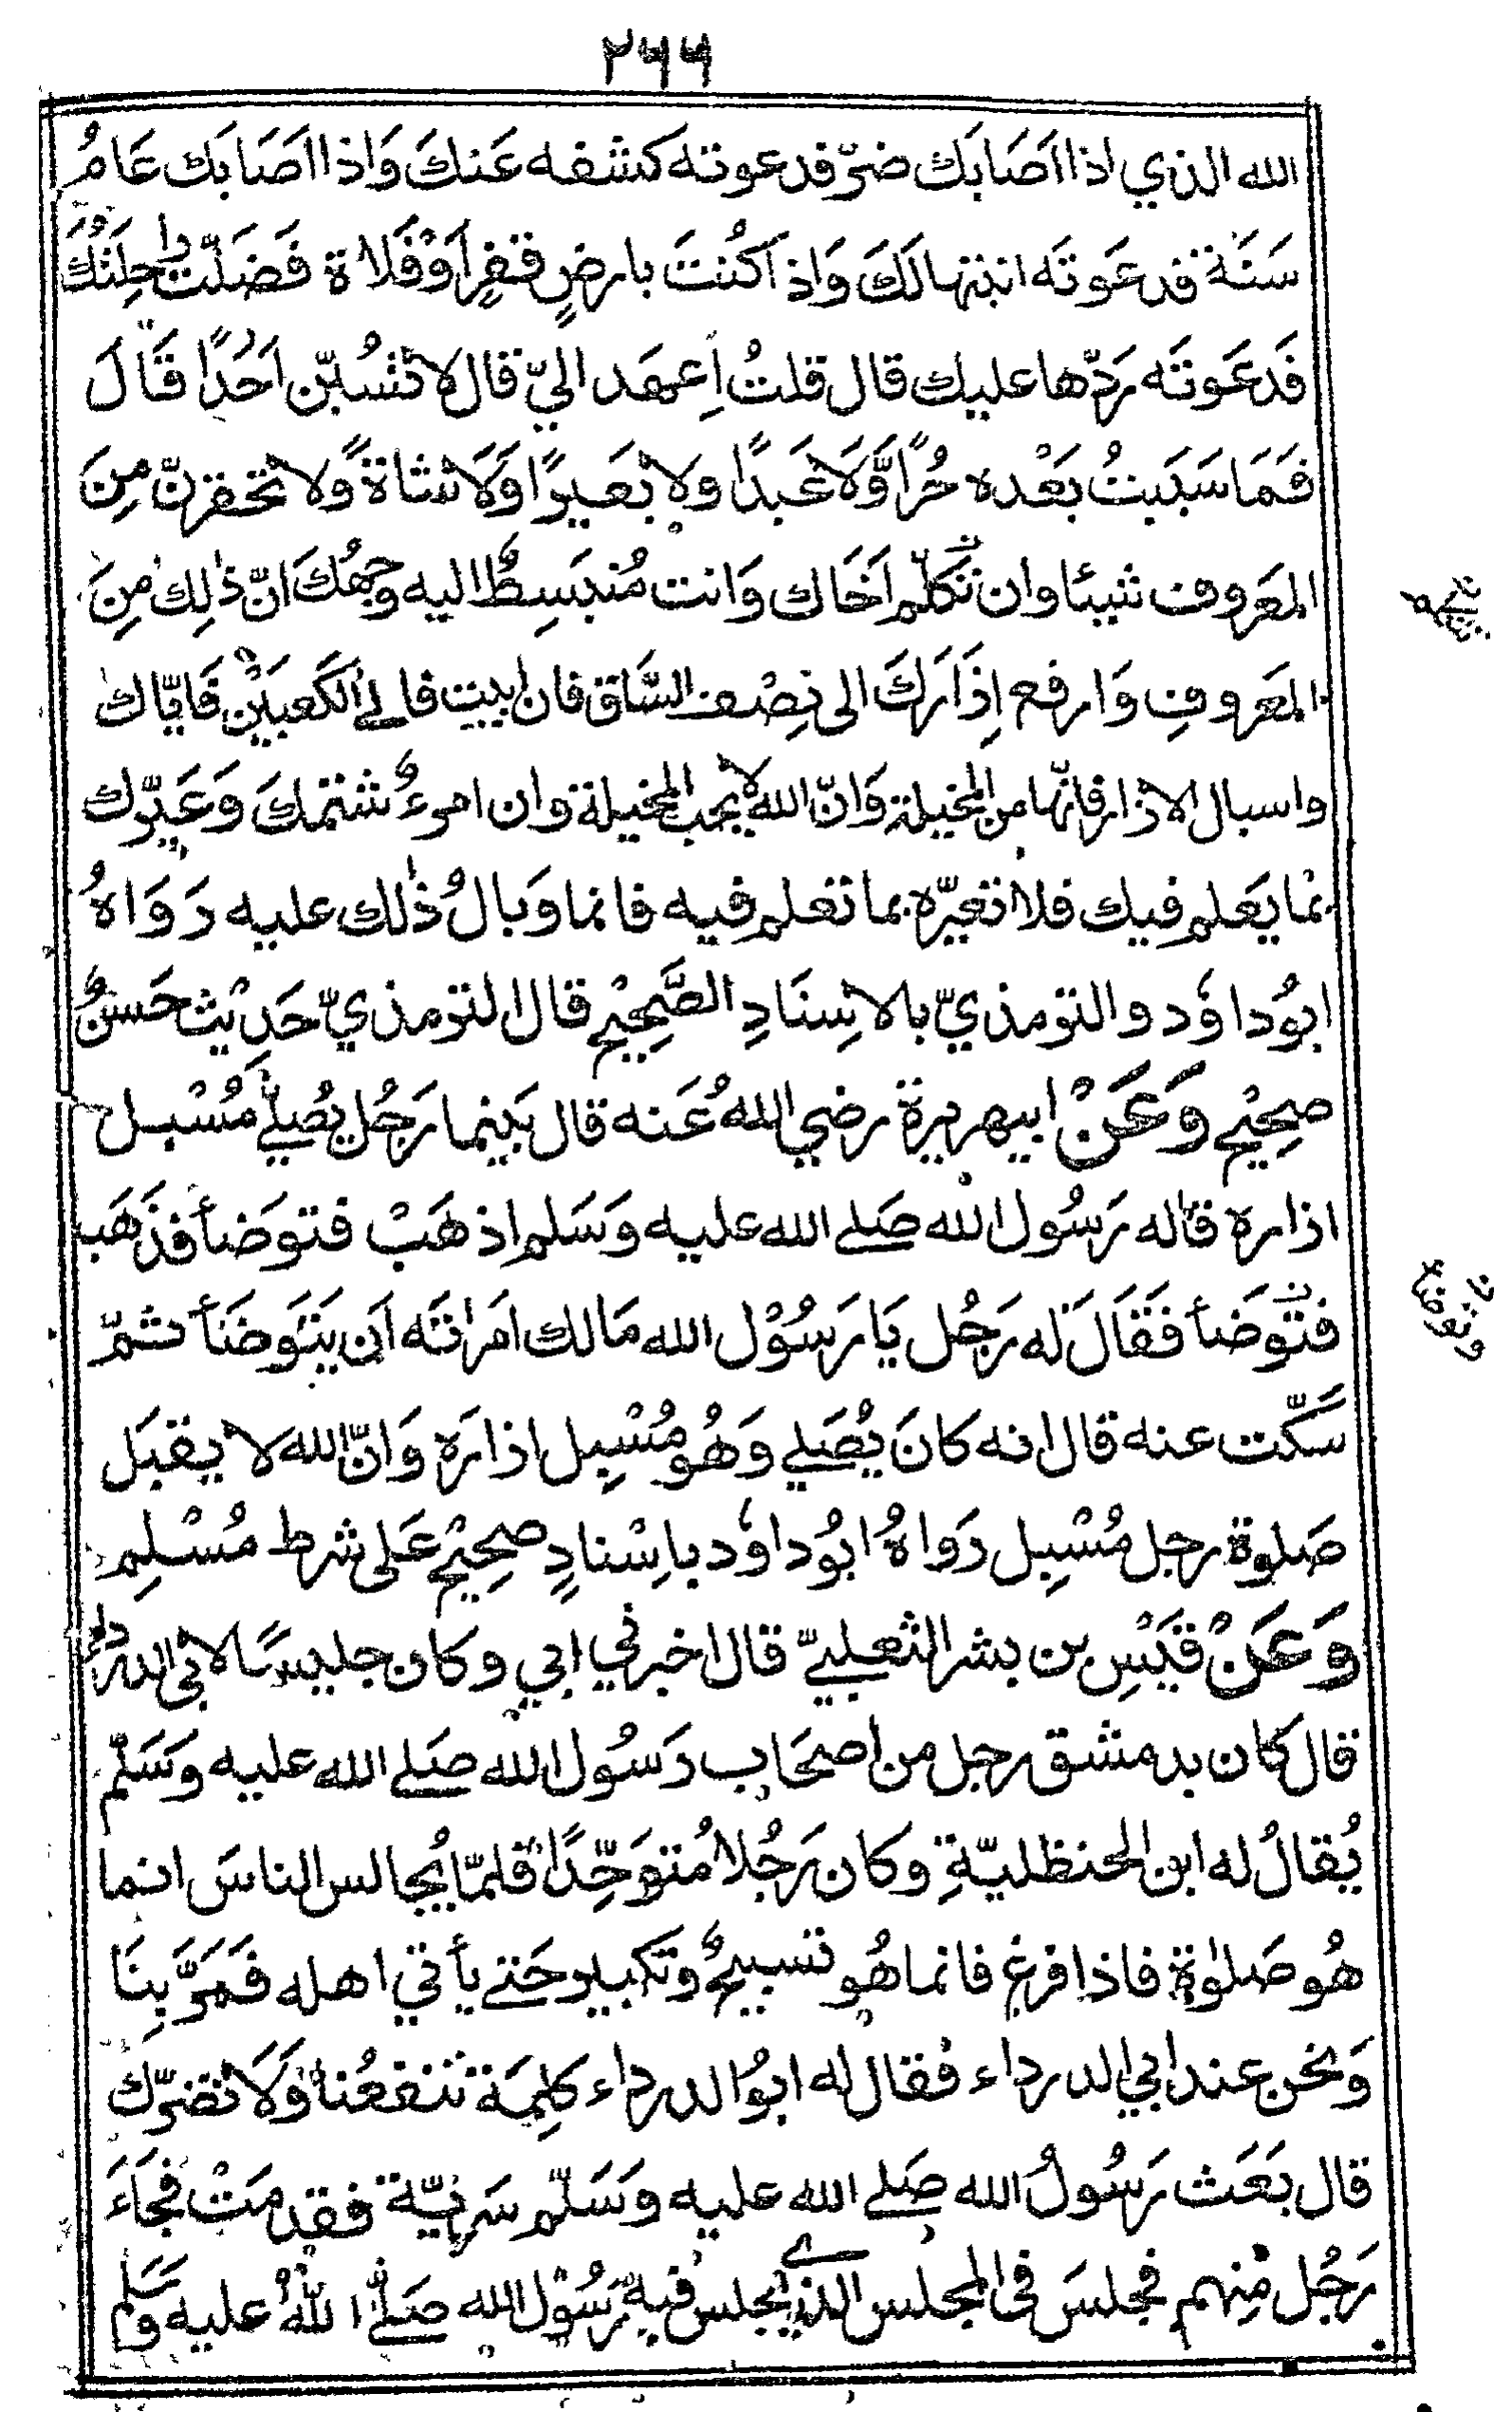 ٢٦٦
الله الذي اذا اَصَابَك ضرّ فدعوته كشفه عَنكَ وَاذا اصَابَك عَامُ
سَنَة فدعَوتَه انبتها لَكَ وَاذا كُنتَ بارضٍ قفرٍ اَوْ فَلاة فَضَلّت راحِلَتُكَ
فَدعَوتَه رَدّها عليك قال قلتُ اِعهَد اليّ قال لا تَسُبّن اَحَدًا قَالَ
فَمَا سَبَبتُ بَعْده حُرًّا وَّلَا عَبدًا ولا بَعيرًا وَلَا شاةً ولا تحقرنّ مِنَ
المَعَروف شيئا وان تكَلّم اَخَاك وَانت مُنبَسِطٌ اليه وجهُكَ انّ ذٰلِك مِنَ
المَعَروفِ وَارفع اِذَارَكَ الى نِصْف السَّاق فان ابيت فالى الكَعبَيْن فَايّاك
واسبال الاذار فانّها من المخيلة وَانّ الله لا يحب المخيلة وان امرءٌ شتمكَ وَعَيّرك
بما يَعَلم فيك فلا تعيّره بما تعلم فيه فانما وَبالُ ذٰلك عليه رَوَاهُ
ابوُداوٗد والترمذيّ بالاسِنَادِ الصَّحِيْحِ قال الترمذيّ حَدِيْث حَسنٌ
صحِيْح وَعَنْ ابيهريرة رضي اللهُ عَنه قال بَينما رَجُل يُصلّي مُسْبل
اذاره قال له رَسُول الله صَلى الله عليه وَسَلم اذهَبْ فتوَضأ فذَهَب
فتوَضأ فَقَالَ له رَجُل يَا رَسُوْل الله مَالك امَرتَه اَن يتَوضَأ ثمّ
سَكّت عنه قال انه كانَ يُصَلي وَهُو مُسْبِل اذارَه وَانّ الله لا يقبَل
صَلوة رجل مُسْبِل رَواهُ ابوُداوٗد باِسْنادٍ صحِيْحٍ عَلى شرط مُسْلِم
وَعَنْ قَيْسِ بن بشر الثعلبيّ قال اخبرني ابي وكان جليسًا لابي الدرداء
قال كَان بدمشق رجل من اصحَاب رَسُول الله صَلى الله عليه وَسَلّم
يُقالُ له ابن الحنظليّةِ وكان رَجُلا مُتوَحِّدًا قلمّا يُجالس الناسَ انما
هُو صَلوٰة فاذا فرغ فانما هُو تسبيحٌ وتكبير حَتى يأتي اهله فَمَرَّ بِنَا
وَنحن عند ابي الدرداء فقال له ابوُ الدرداء كلِمَة تنفعُنا وَلَا تضرّك
قال بَعَث رَسُولُ الله صَلى الله عليه وَسَلّم سَريّة فقدمَتْ فجَاءَ
رَجُل مِنهم فجلسَ فى المجلس الذي يجلس فيه رَسُوْل الله صَلّى اللهُ عليه وَسَلم